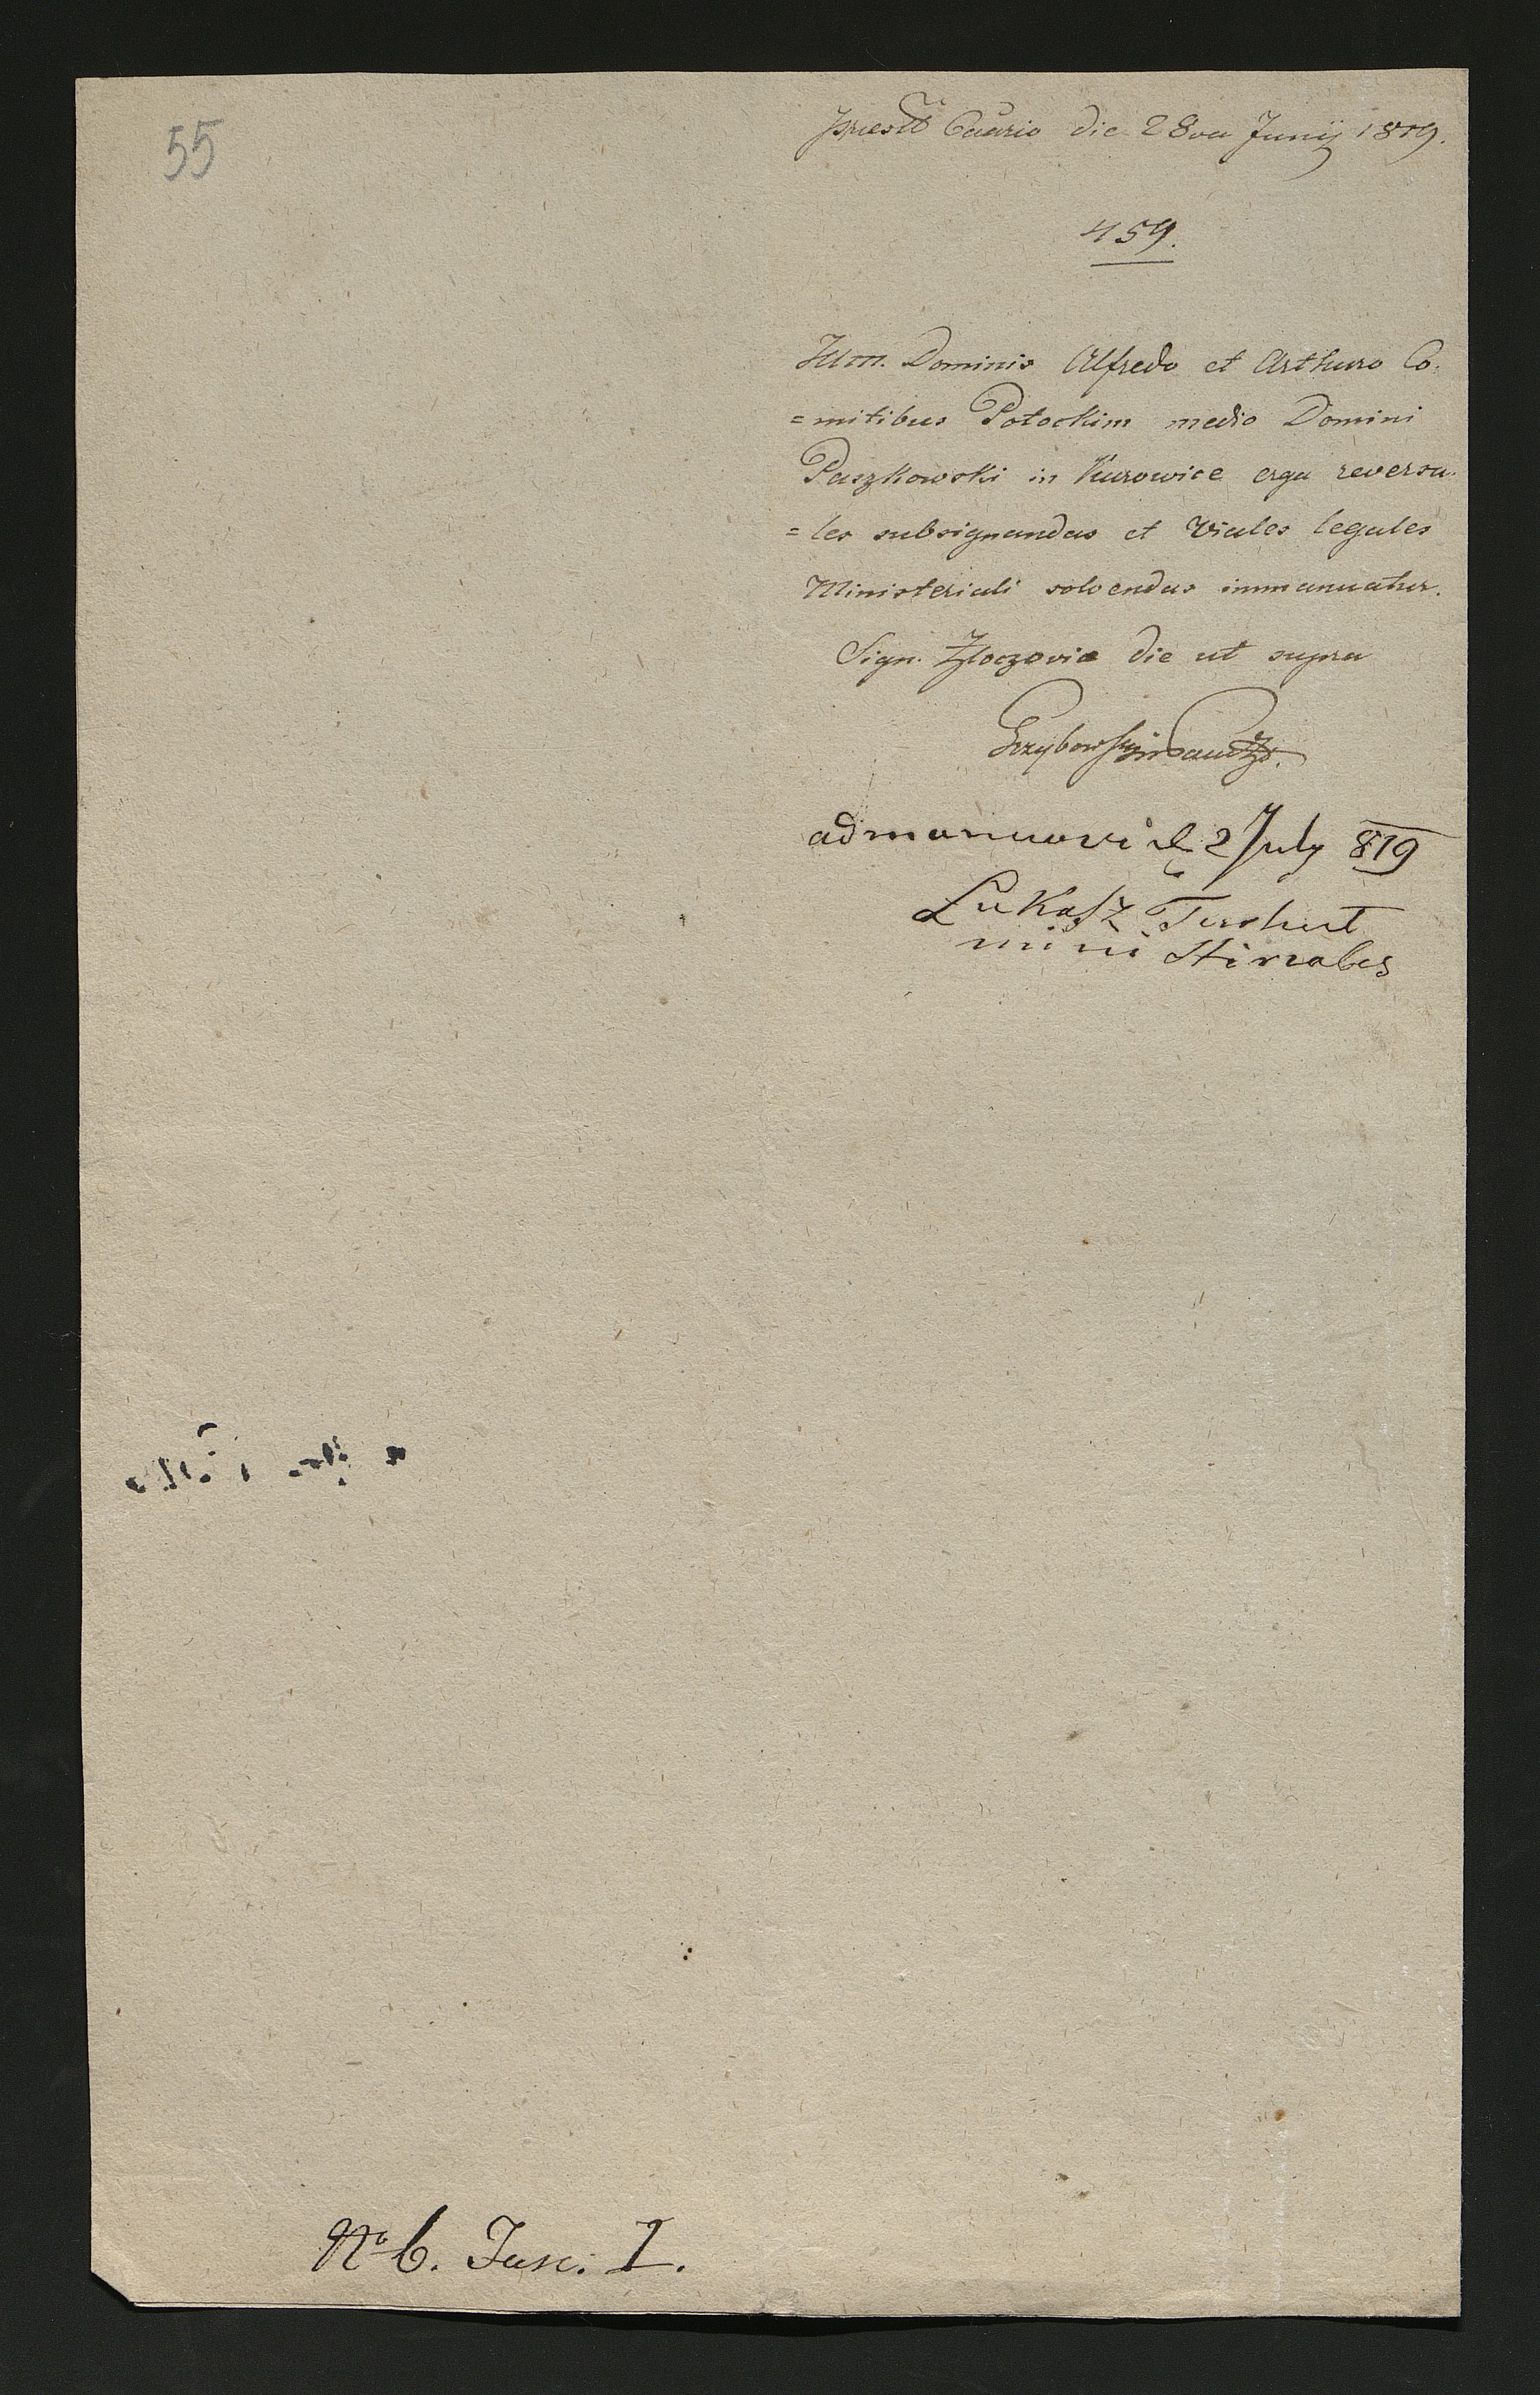 55
die 28va Junij 1819.
459.
Illm. Dominis Alfredo et Arthuro Co-
=mitibus Potockim medio Domini
Paszkowski in Kurowice erga reversa-
=les subsignandas et Viales legales
Ministeriali solvendas immanuatur.
Sign. Złoczoviæ die ut supra
admanuovi d. 2 July 819
Lukasz
mini Stiriales
No 6. Fasc: I.